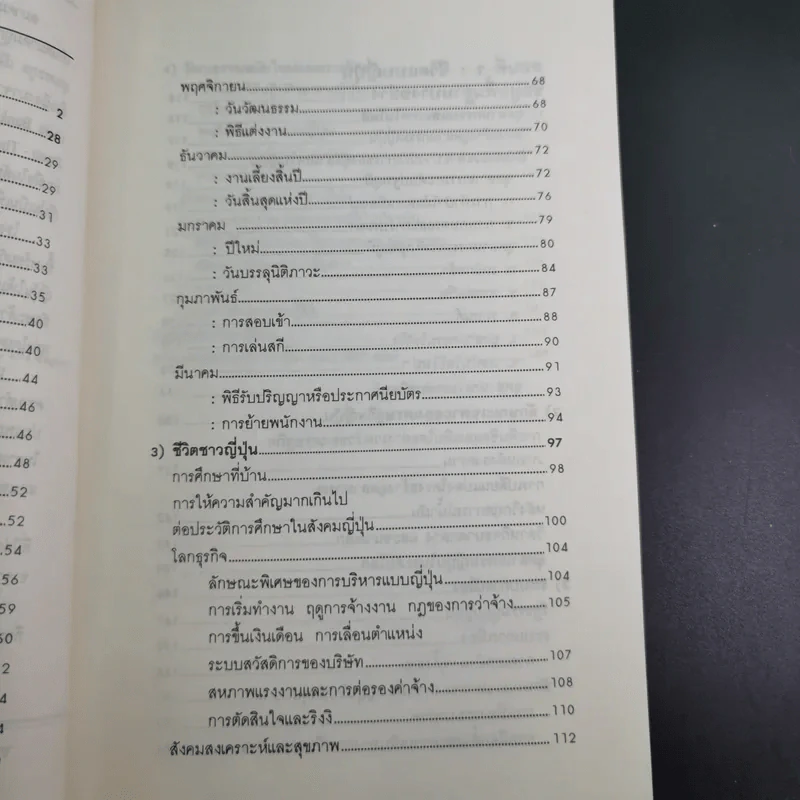 2
28
29
29
31
33
33
35
40
40
44
46
46
48
52
52
54
56
59
พฤศจิกายน 68
: วันวัฒนธรรม 68
: พิธีแต่งงาน 70
ธันวาคม 72
: งานเลี้ยงสิ้นปี 72
: วันสิ้นสุดแห่งปี 76
มกราคม 79
: ปีใหม่ 80
: วันบรรลุนิติภาวะ 84
กุมภาพันธ์ 87
: การสอบเข้า 88
: การเล่นสกี 90
มีนาคม 91
: พิธีรับปริญญาหรือประกาศนียบัตร 93
: การย้ายพนักงาน 94
3) ชีวิตชาวญี่ปุ่น 97
การศึกษาที่บ้าน 98
การให้ความสำคัญมากเกินไป
ต่อประวัติการศึกษาในสังคมญี่ปุ่น 100
โลกธุรกิจ 104
ลักษณะพิเศษของการบริหารแบบญี่ปุ่น 104
การเริ่มทำงาน ฤดูการจ้างงาน กฎของการว่าจ้าง 105
การขึ้นเงินเดือน การเลื่อนตำแหน่ง
ระบบสวัสดิการของบริษัท 107
สหภาพแรงงานและการต่อรองค่าจ้าง 108
การตัดสินใจและริงงิ 110
สังคมสงเคราะห์และสุขภาพ 112